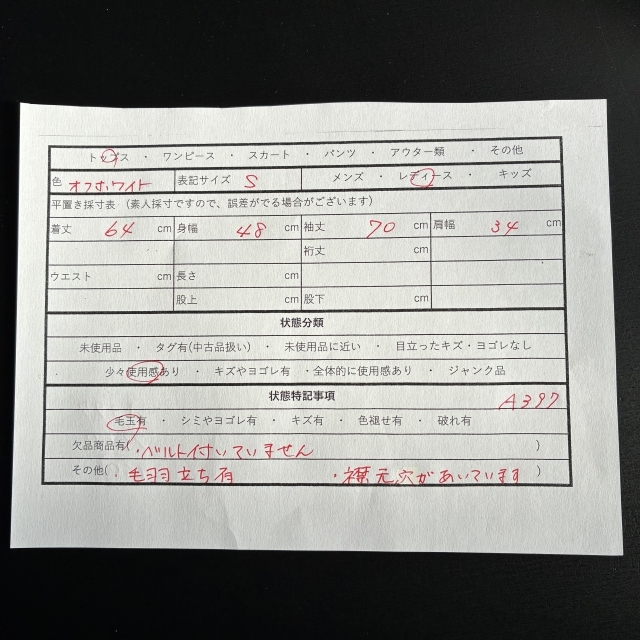 トップス ・ ワンピース ・ スカート ・ パンツ ・ アウター類 ・ その他
色 オフホワイト 表記サイズ S メンズ ・ レディース ・ キッズ
平置き採寸表 (素人採寸ですので、誤差がでる場合がございます)
着丈 64 cm 身幅 48 cm 袖丈 70 cm 肩幅 34 cm
裄丈 cm
ウエスト cm 長さ cm
股上 cm 股下 cm
状態分類
未使用品 ・ タグ有(中古品扱い) ・ 未使用品に近い ・ 目立ったキズ・ヨゴレなし
少々使用感あり ・ キズやヨゴレ有 ・全体的に使用感あり ・ ジャンク品
状態特記事項 A397
毛玉有 ・ シミやヨゴレ有 ・ キズ有 ・ 色褪せ有 ・ 破れ有
欠品商品有( ・ベルト付いていません )
その他( ・毛羽立ち有 ・襟元穴があいています )